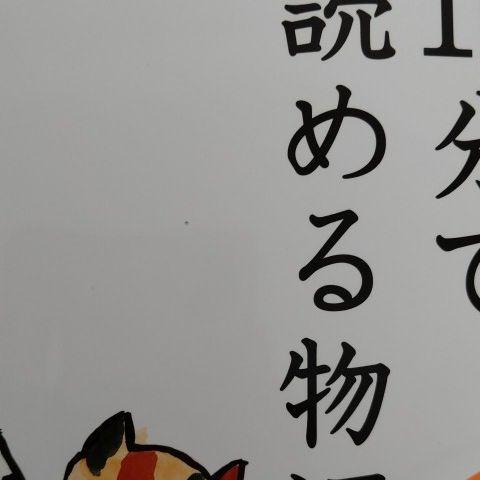 1分で
読める物語